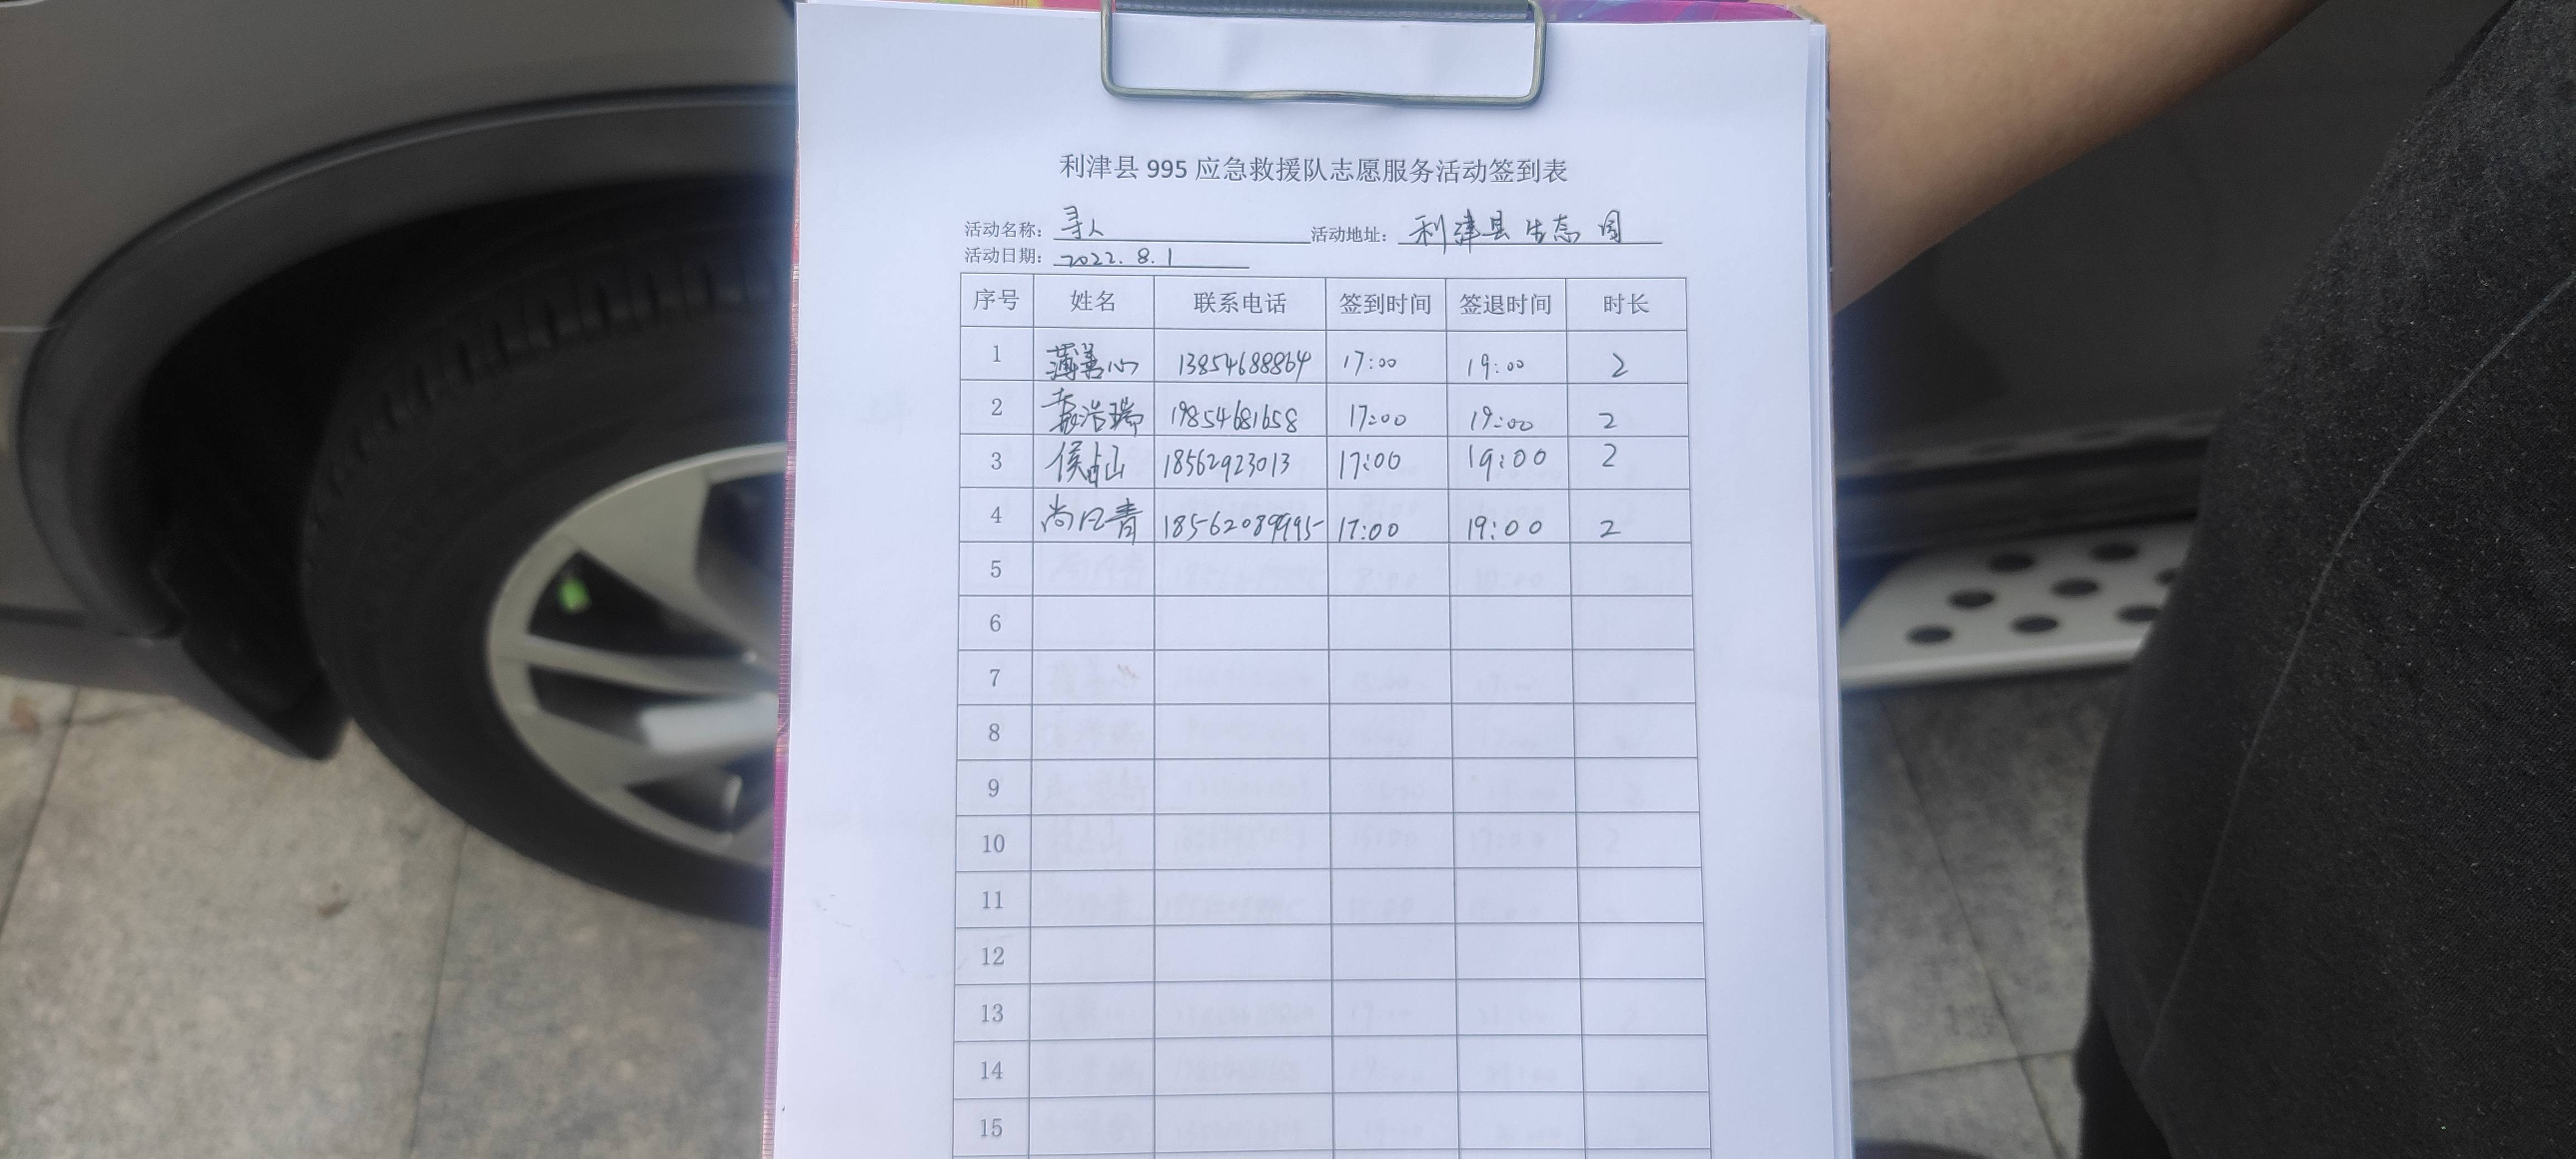 利津县 995 应急救援队志愿服务活动签到表
活动名称： 寻人 活动地址： 利津县生态园
活动日期： 2022. 8. 1
序号 姓名 联系电话 签到时间 签退时间 时长
1 薄善心 13854688864 17:00 19:00 2
2 浩瑞 19854681658 17:00 19:00 2
3 侯占山 18562923013 17:00 19:00 2
4 尚已青 18562089995 17:00 19:00 2
5
6
7
8
9
10
11
12
13
14
15